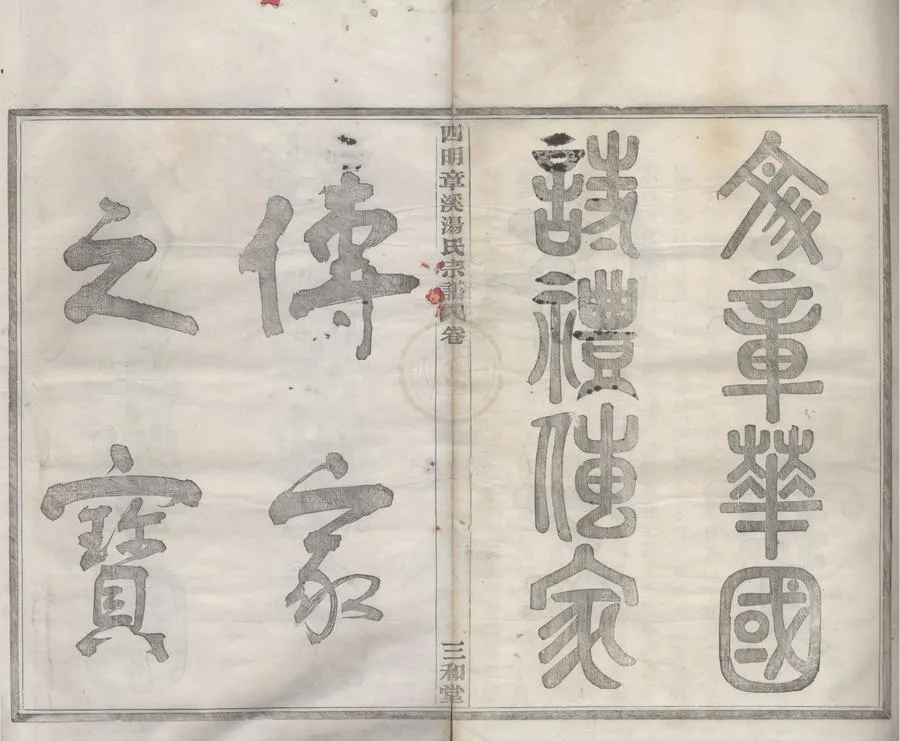 文章華國
詩禮傳家
四明章溪湯氏宗譜
卷
三和堂
傳家
之寶